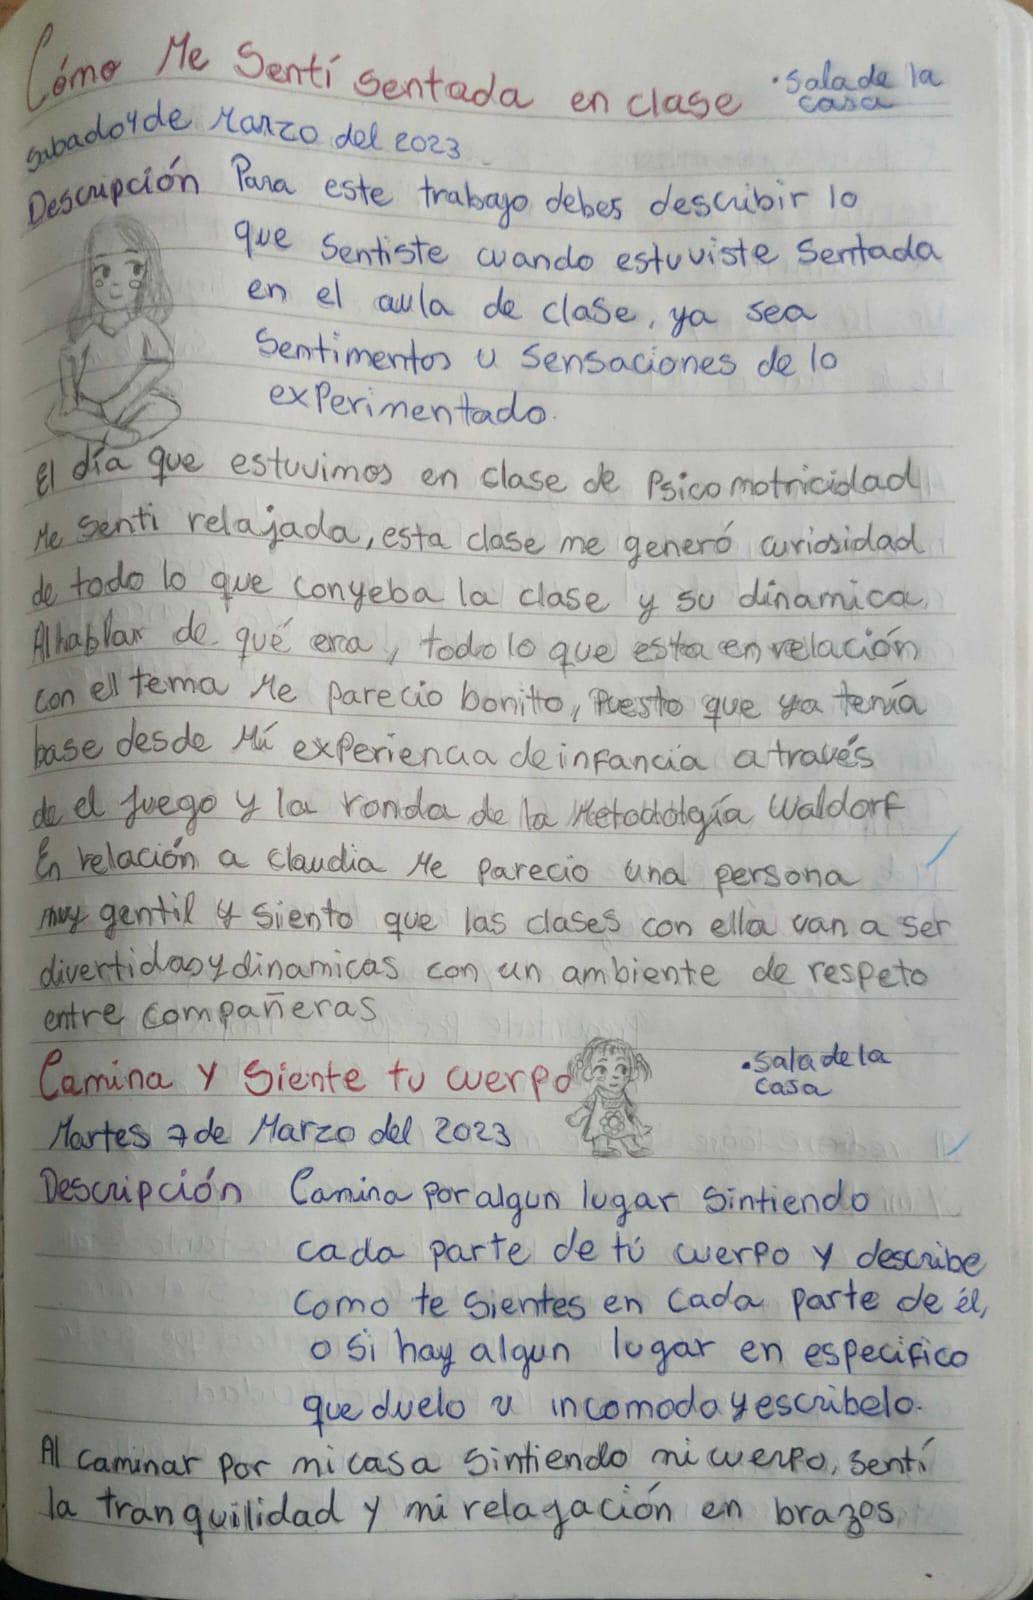 Cómo Me Sentí Sentada en clase
• Sala de la
casa
Sabado 4 de Marzo del 2023
Descripción Para este trabajo debes describir lo
que Sentiste cuando estuviste Sentada
en el aula de clase, ya sea
Sentimentos u Sensaciones de lo
experimentado.
El día que estuvimos en clase de Psicomotricidad
Me senti relajada, esta clase me generó curiosidad
de todo lo que conyeba la clase y su dinamica.
Al hablar de qué era, todo lo que esta en relación
con el tema Me parecio bonito, Puesto que ya tenía
base desde Mí experiencia de infancia a través
de el juego y la ronda de la Metodología Waldorf
En relación a Claudia Me parecio una persona
muy gentil y siento que las clases con ella van a ser
divertidas y dinamicas con un ambiente de respeto
entre compañeras
Camina y Siente tu cuerpo
• Sala de la
casa
Martes 7 de Marzo del 2023
Descripción Camina por algun lugar Sintiendo
cada parte de tú cuerpo y describe
como te Sientes en cada parte de él,
o si hay algun lugar en especifico
que duela u incomoda y escribelo.
Al caminar por mi casa Sintiendo mi cuerpo, Sentí
la tranquilidad y mi relagación en brazos